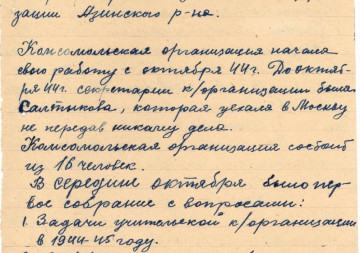 зации Азинского р-на.
Комсомольская организация начала
свою работу с октября 44г. До октяб-
ря 44г. секретарем к/организации была
Салтыкова, которая уехала в Москву
не передав никому дела.
Комсомольская организация состоит
из 16 человек.
В середине октября было пер-
вое собрание с вопросами:
1. Задачи учительской к/организации
в 1944-45 году.